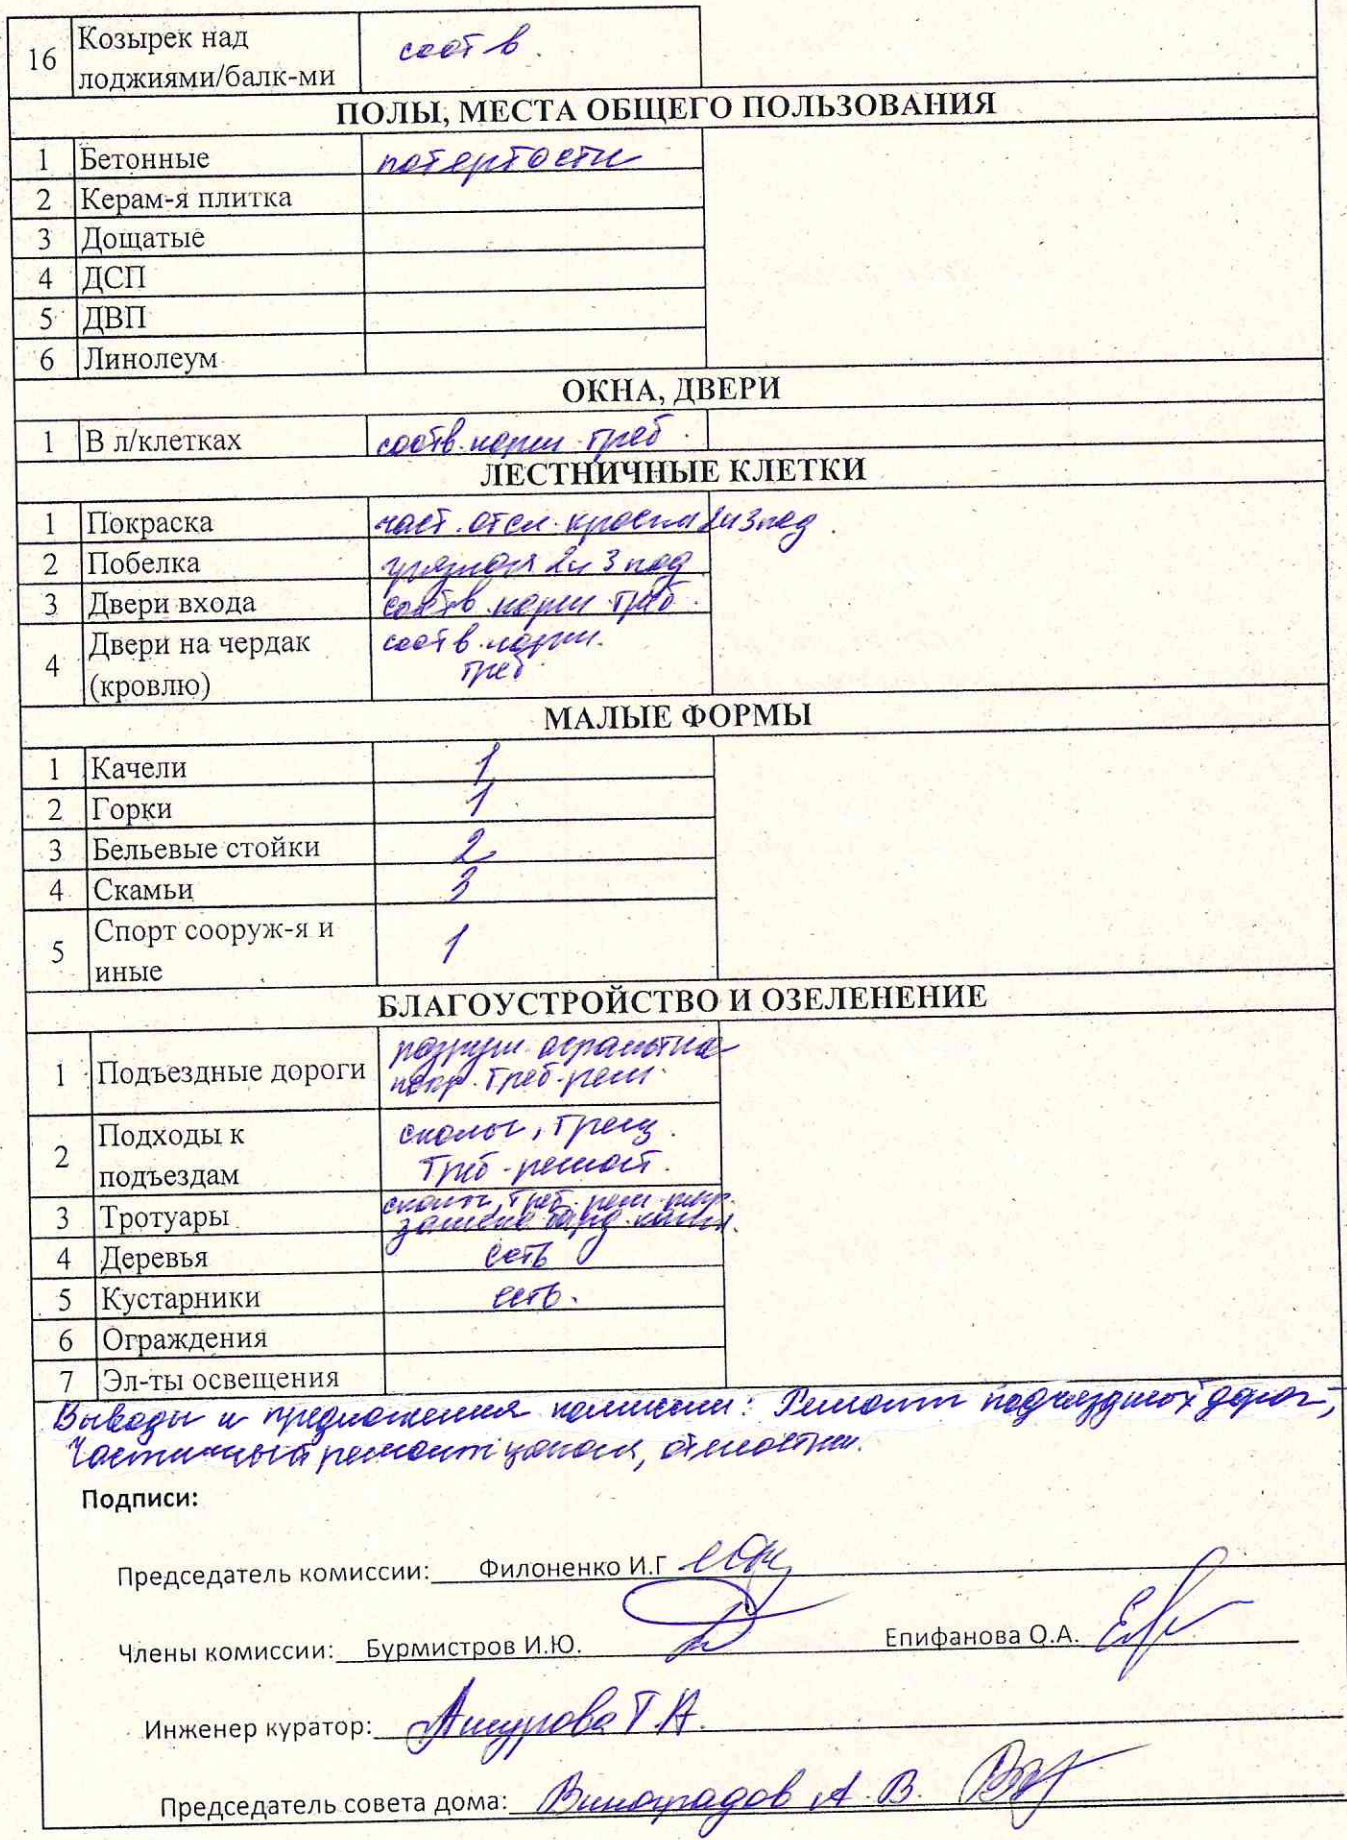 16 Козырек над
лоджиями/балк-ми соотв.
ПОЛЫ, МЕСТА ОБЩЕГО ПОЛЬЗОВАНИЯ
1 Бетонные потертости
2 Керам-я плитка
3 Дощатые
4 ДСП
5 ДВП
6 Линолеум
ОКНА, ДВЕРИ
1 В л/клетках соотв. норм. треб.
ЛЕСТНИЧНЫЕ КЛЕТКИ
1 Покраска част. отсл. краски 2и3 под.
2 Побелка грязная 2и 3 под
3 Двери входа соотв. норм треб.
4 Двери на чердак
(кровлю) соотв. норм.
треб.
МАЛЫЕ ФОРМЫ
1 Качели 1
2 Горки 1
3 Бельевые стойки 2
4 Скамьи 3
5 Спорт сооруж-я и
иные 1
БЛАГОУСТРОЙСТВО И ОЗЕЛЕНЕНИЕ
1 Подъездные дороги разруш.
треб. рем.
2 Подходы к
подъездам сколы, трещ.
треб. ремонт.
3 Тротуары сколы, треб. рем.
замена борд. камн.
4 Деревья есть
5 Кустарники есть.
6 Ограждения
7 Эл-ты освещения
Выводы и предложения комиссии: Ремонт подъездных дорог,
Частичный ремонт цоколя, отмостки.
Подписи:
Председатель комиссии: Филоненко И.Г
Члены комиссии: Бурмистров И.Ю. Епифанова О.А.
Инженер куратор: Ашурова Т.А.
Председатель совета дома: Виноградов А.В.